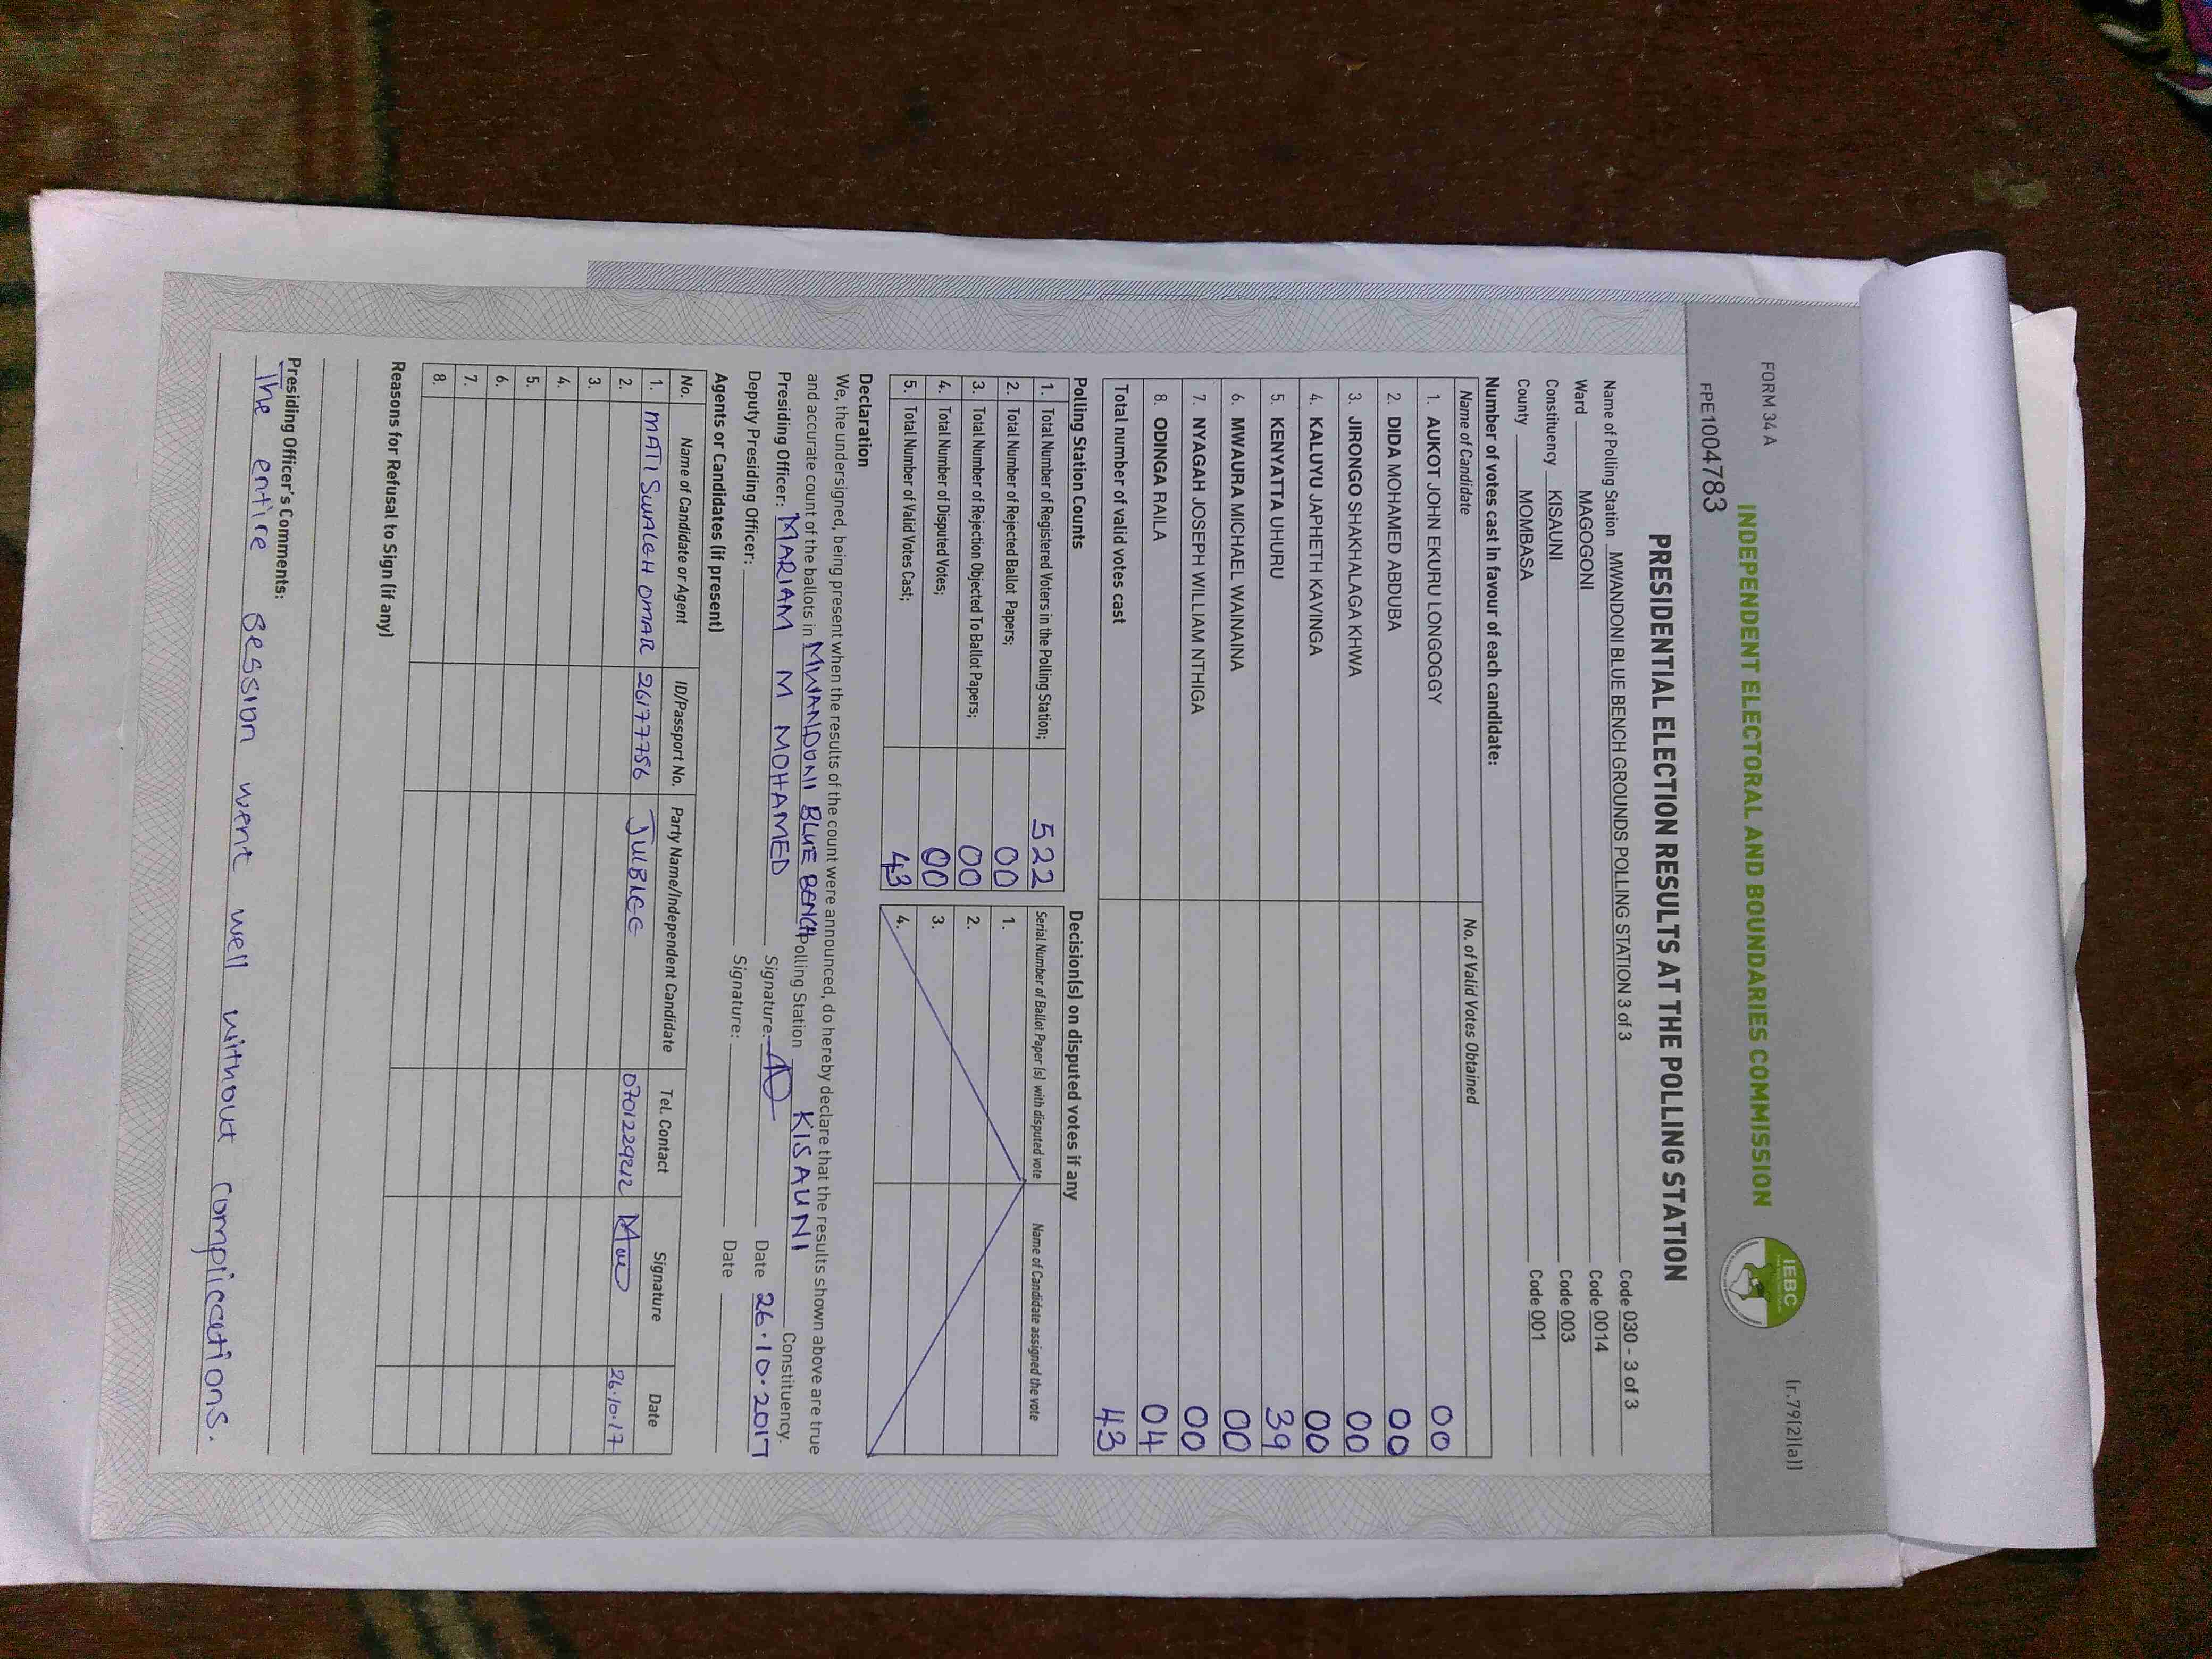 FORM 34 A
(r.79(2)(a))
INDEPENDENT ELECTORAL AND BOUNDARIES COMMISSION
IEBC
FPE1004783
PRESIDENTIAL ELECTION RESULTS AT THE POLLING STATION
Name of Polling Station MWANDONI BLUE BENCH GROUNDS POLLING STATION 3 of 3 Code 030 - 3 of 3
Ward MAGOGONI Code 0014
Constituency KISAUNI Code 003
County MOMBASA Code 001
Number of votes cast in favour of each candidate:
Name of Candidate No. of Valid Votes Obtained
1. AUKOT JOHN EKURU LONGOGGY 00
2. DIDA MOHAMED ABDUBA 00
3. JIRONGO SHAKHALAGA KHWA 00
4. KALUYU JAPHETH KAVINGA 00
5. KENYATTA UHURU 39
6. MWAURA MICHAEL WAINAINA 00
7. NYAGAH JOSEPH WILLIAM NTHIGA 00
8. ODINGA RAILA 04
Total number of valid votes cast 43
Polling Station Counts Decision(s) on disputed votes if any
1. Total Number of Registered Voters in the Polling Station; 522 Serial Number of Ballot Paper (s) with disputed vote Name of Candidate assigned the vote
2. Total Number of Rejected Ballot Papers; 00 1.
3. Total Number of Rejection Objected To Ballot Papers; 00 2.
4. Total Number of Disputed Votes; 00 3.
5. Total Number of Valid Votes Cast; 43 4.
Declaration
We, the undersigned, being present when the results of the count were announced, do hereby declare that the results shown above are true
and accurate count of the ballots in MWANDONI BLUE BENCH Polling Station KISAUNI Constituency.
Presiding Officer: MARIAM M MOHAMED Signature: Date 26.10.2017
Deputy Presiding Officer: Signature: Date
Agents or Candidates (if present)
No. Name of Candidate or Agent ID/Passport No. Party Name/Independent Candidate Tel. Contact Signature Date
1. MATI SWALEH OMAR 26177756 JUBILEE 0701229212 26.10.17
2.
3.
4.
5.
6.
7.
8.
Reasons for Refusal to Sign (if any)
Presiding Officer's Comments:
The entire session went well without complications.